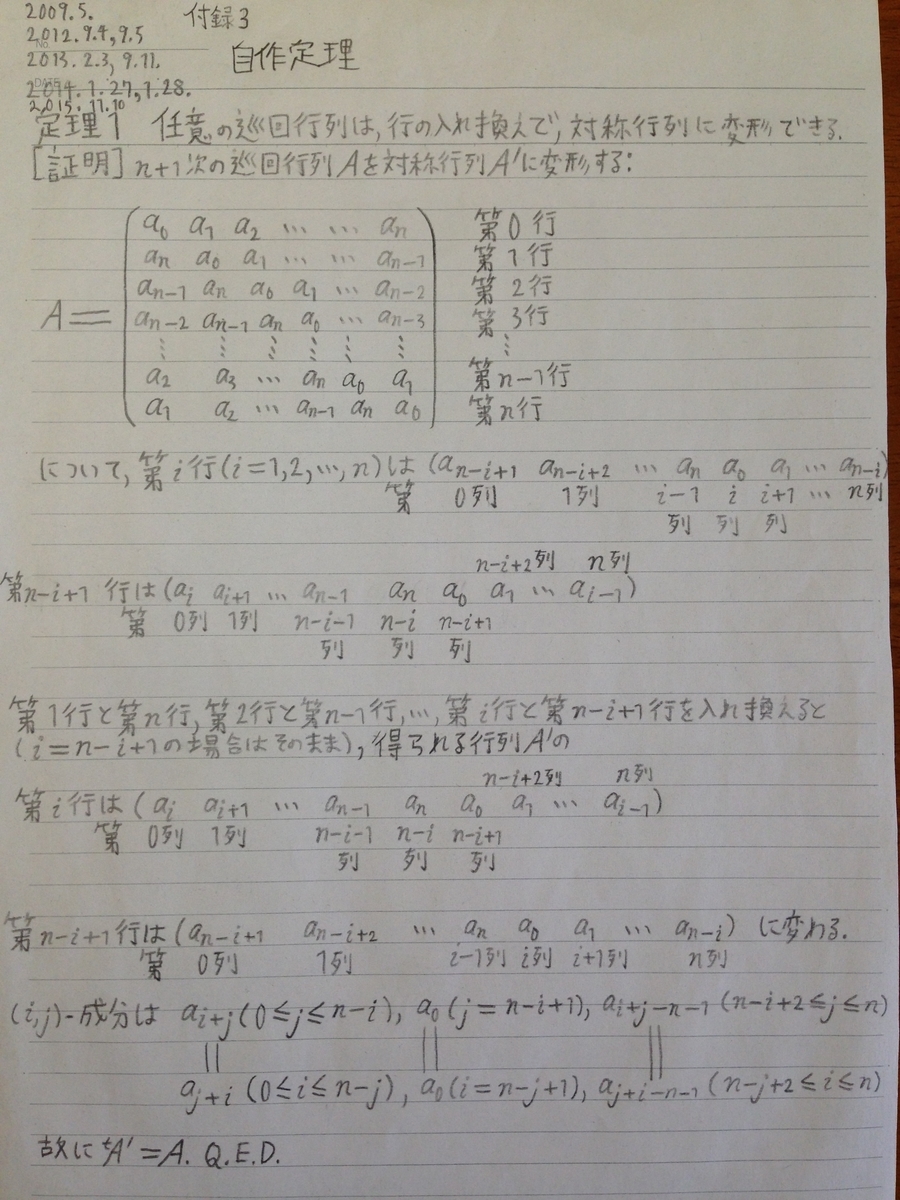 2009.5.
付録3
2012.9.4,9.5
2013.2.3, 9.11.
自作定理
2014.1.27,1.28.
2015.11.10
定理1 任意の巡回行列は,行の入れ換えで,対称行列に変形できる.
[証明] n+1次の巡回行列Aを対称行列A'に変形する:
a₀ a₁ a₂ … … aₙ 第0行
aₙ a₀ a₁ … … aₙ₋₁ 第1行
aₙ₋₁ aₙ a₀ a₁ … aₙ₋₂ 第2行
A= aₙ₋₂ aₙ₋₁ aₙ a₀ … aₙ₋₃ 第3行
⋮ ⋮ ⋮ ⋮ ⋮ ⋮ ⋮
a₂ a₃ … aₙ a₀ a₁ 第n-1行
a₁ a₂ … aₙ₋₁ aₙ a₀ 第n行
について,第i行(i=1,2,…,n)は (a_{n-i+1} a_{n-i+2} … aₙ a₀ a₁ … a_{n-i})
第 0列 1列 i-1 i i+1 … n列
列 列 列
n-i+2列 n列
第n-i+1 行は(a_i a_{i+1} … a_{n-1} aₙ a₀ a₁ … a_{i-1})
第 0列 1列 n-i-1 n-i n-i+1
列 列 列
第1行と第n行,第2行と第n-1行,…,第i行と第n-i+1行を入れ換えると
(i=n-i+1の場合はそのまま),得られる行列A'の
n-i+2列 n列
第i行は(a_i a_{i+1} … a_{n-1} aₙ a₀ a₁ … a_{i-1})
第 0列 1列 n-i-1 n-i n-i+1
列 列 列
第n-i+1行は(a_{n-i+1} a_{n-i+2} … aₙ a₀ a₁ … a_{n-i}) に変わる.
第 0列 1列 i-1列 i列 i+1列 n列
(i,j)-成分は a_{i+j}(0≤j≤n-i), a₀(j=n-i+1), a_{i+j-n-1}(n-i+2≤j≤n)
|| || ||
a_{j+i}(0≤i≤n-j), a₀(i=n-j+1), a_{j+i-n-1}(n-j+2≤i≤n)
故に ᵗA'=A. Q.E.D.